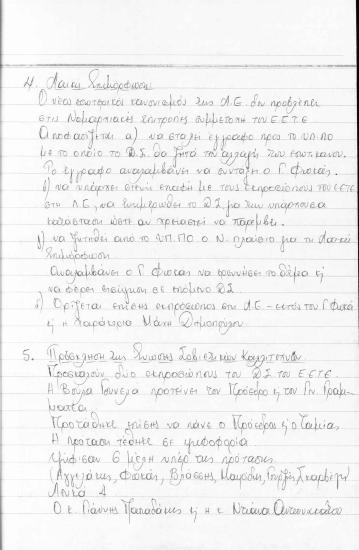 4. Λαϊκή Επιμόρφωση
Ο νέος εσωτερικός κανονισμός της Λ.Ε. δεν προβλέπει
στις Νομαρχιακές Επιτροπές συμμετοχή του Ε.Ε.Τ.Ε
Αποφασίζεται α) να σταλεί έγγραφο προς το ΥΠ.ΠΟ
με το οποίο το Δ.Σ. θα ζητά την αλλαγή του εσωτ. κανον.
Το έγγραφο αναλαμβάνει να συντάξει ο Γ. Φωκάς.
β) να υπάρχει στενή επαφή με τους εκπροσώπους του ΕΕΤΕ
στη Λ.Ε., να ενημερωθεί το Δ.Σ. για την υπάρχουσα
κατάσταση ώστε αν χρειαστεί να παρέμβει.
γ) να ζητηθεί από το ΥΠ.ΠΟ ο Ν. πλαίσιο για τη Λαϊκή
Επιμόρφωση
Αναλαμβάνει ο Γ. Φωκάς να ερευνήσει το θέμα κ
να φέρει εισήγηση σε επόμενο Δ.Σ.
δ) Ορίζεται επίσης εκπρόσωπος στη Λ.Ε - εκτός του Γ. Φωκά
κ η χαράκτρια Μάχη
5. Πρόσκληση της Ένωσης Σοβιετικών Καλλιτεχνών.
Προσκαλούν δύο εκπροσώπους του Δ.Σ. του Ε.Ε.Τ.Ε.
Η Βούλα προτείνει τον Πρόεδρο κ τον Γεν. Γραμ-
ματέα
Προτάθηκε επίσης να πάνε ο Πρόεδρος κ ο Ταμίας
Η πρόταση τέθηκε σε ψηφοφορία
Ψήφισαν 6 μέλη υπέρ της πρότασης
Φωκάς, Βλάσσης,
Λευκά 4
Ο κ. Γιάννης Παπαδάκης κ η κ. Ντιάνα